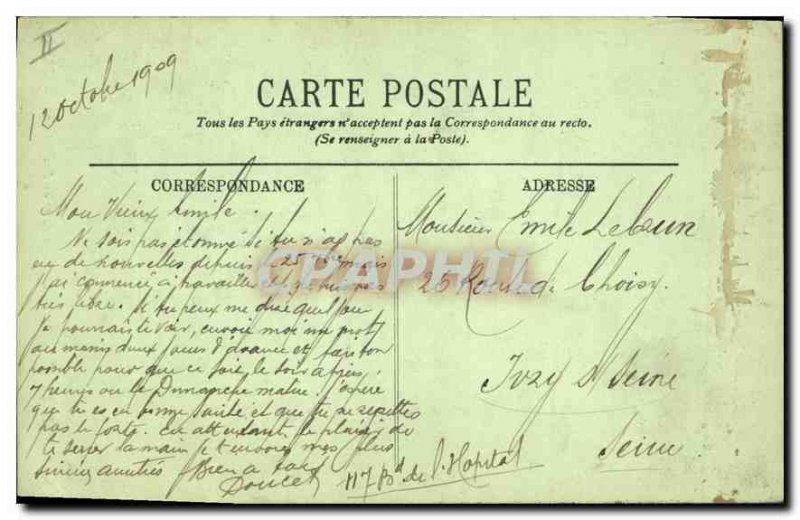 II
12 octobre 1909
CARTE POSTALE
Tous les Pays étrangers n'acceptent pas la Correspondance au recto.
(Se renseigner à la Poste).
CORRESPONDANCE
ADRESSE
Mon Vieux Emile.
Ne sois pas étonné si tu n'as pas
eu de nouvelles depuis le 25 mais
j'ai commencé à travailler et je suis pas
très libre. Si tu peux me dire quel jour
je pourrais te voir, envoie moi un mot
au moins deux jours d'avance et fais ton
possible pour que ce soie le soir après
7 heures ou le Dimanche matin. J'espère
que tu es en bonne santé et que tu ne
pas le toute. En attendant le plaisir de
te serrer la main je t'envoies mes plus
sincères amitiés Bien a toi
Doucet
117 Bd de l'Hopital
Monsieur Emile Lebrun
26 Route de Choisy
Ivry s/ Seine
Seine
CPAPHIL